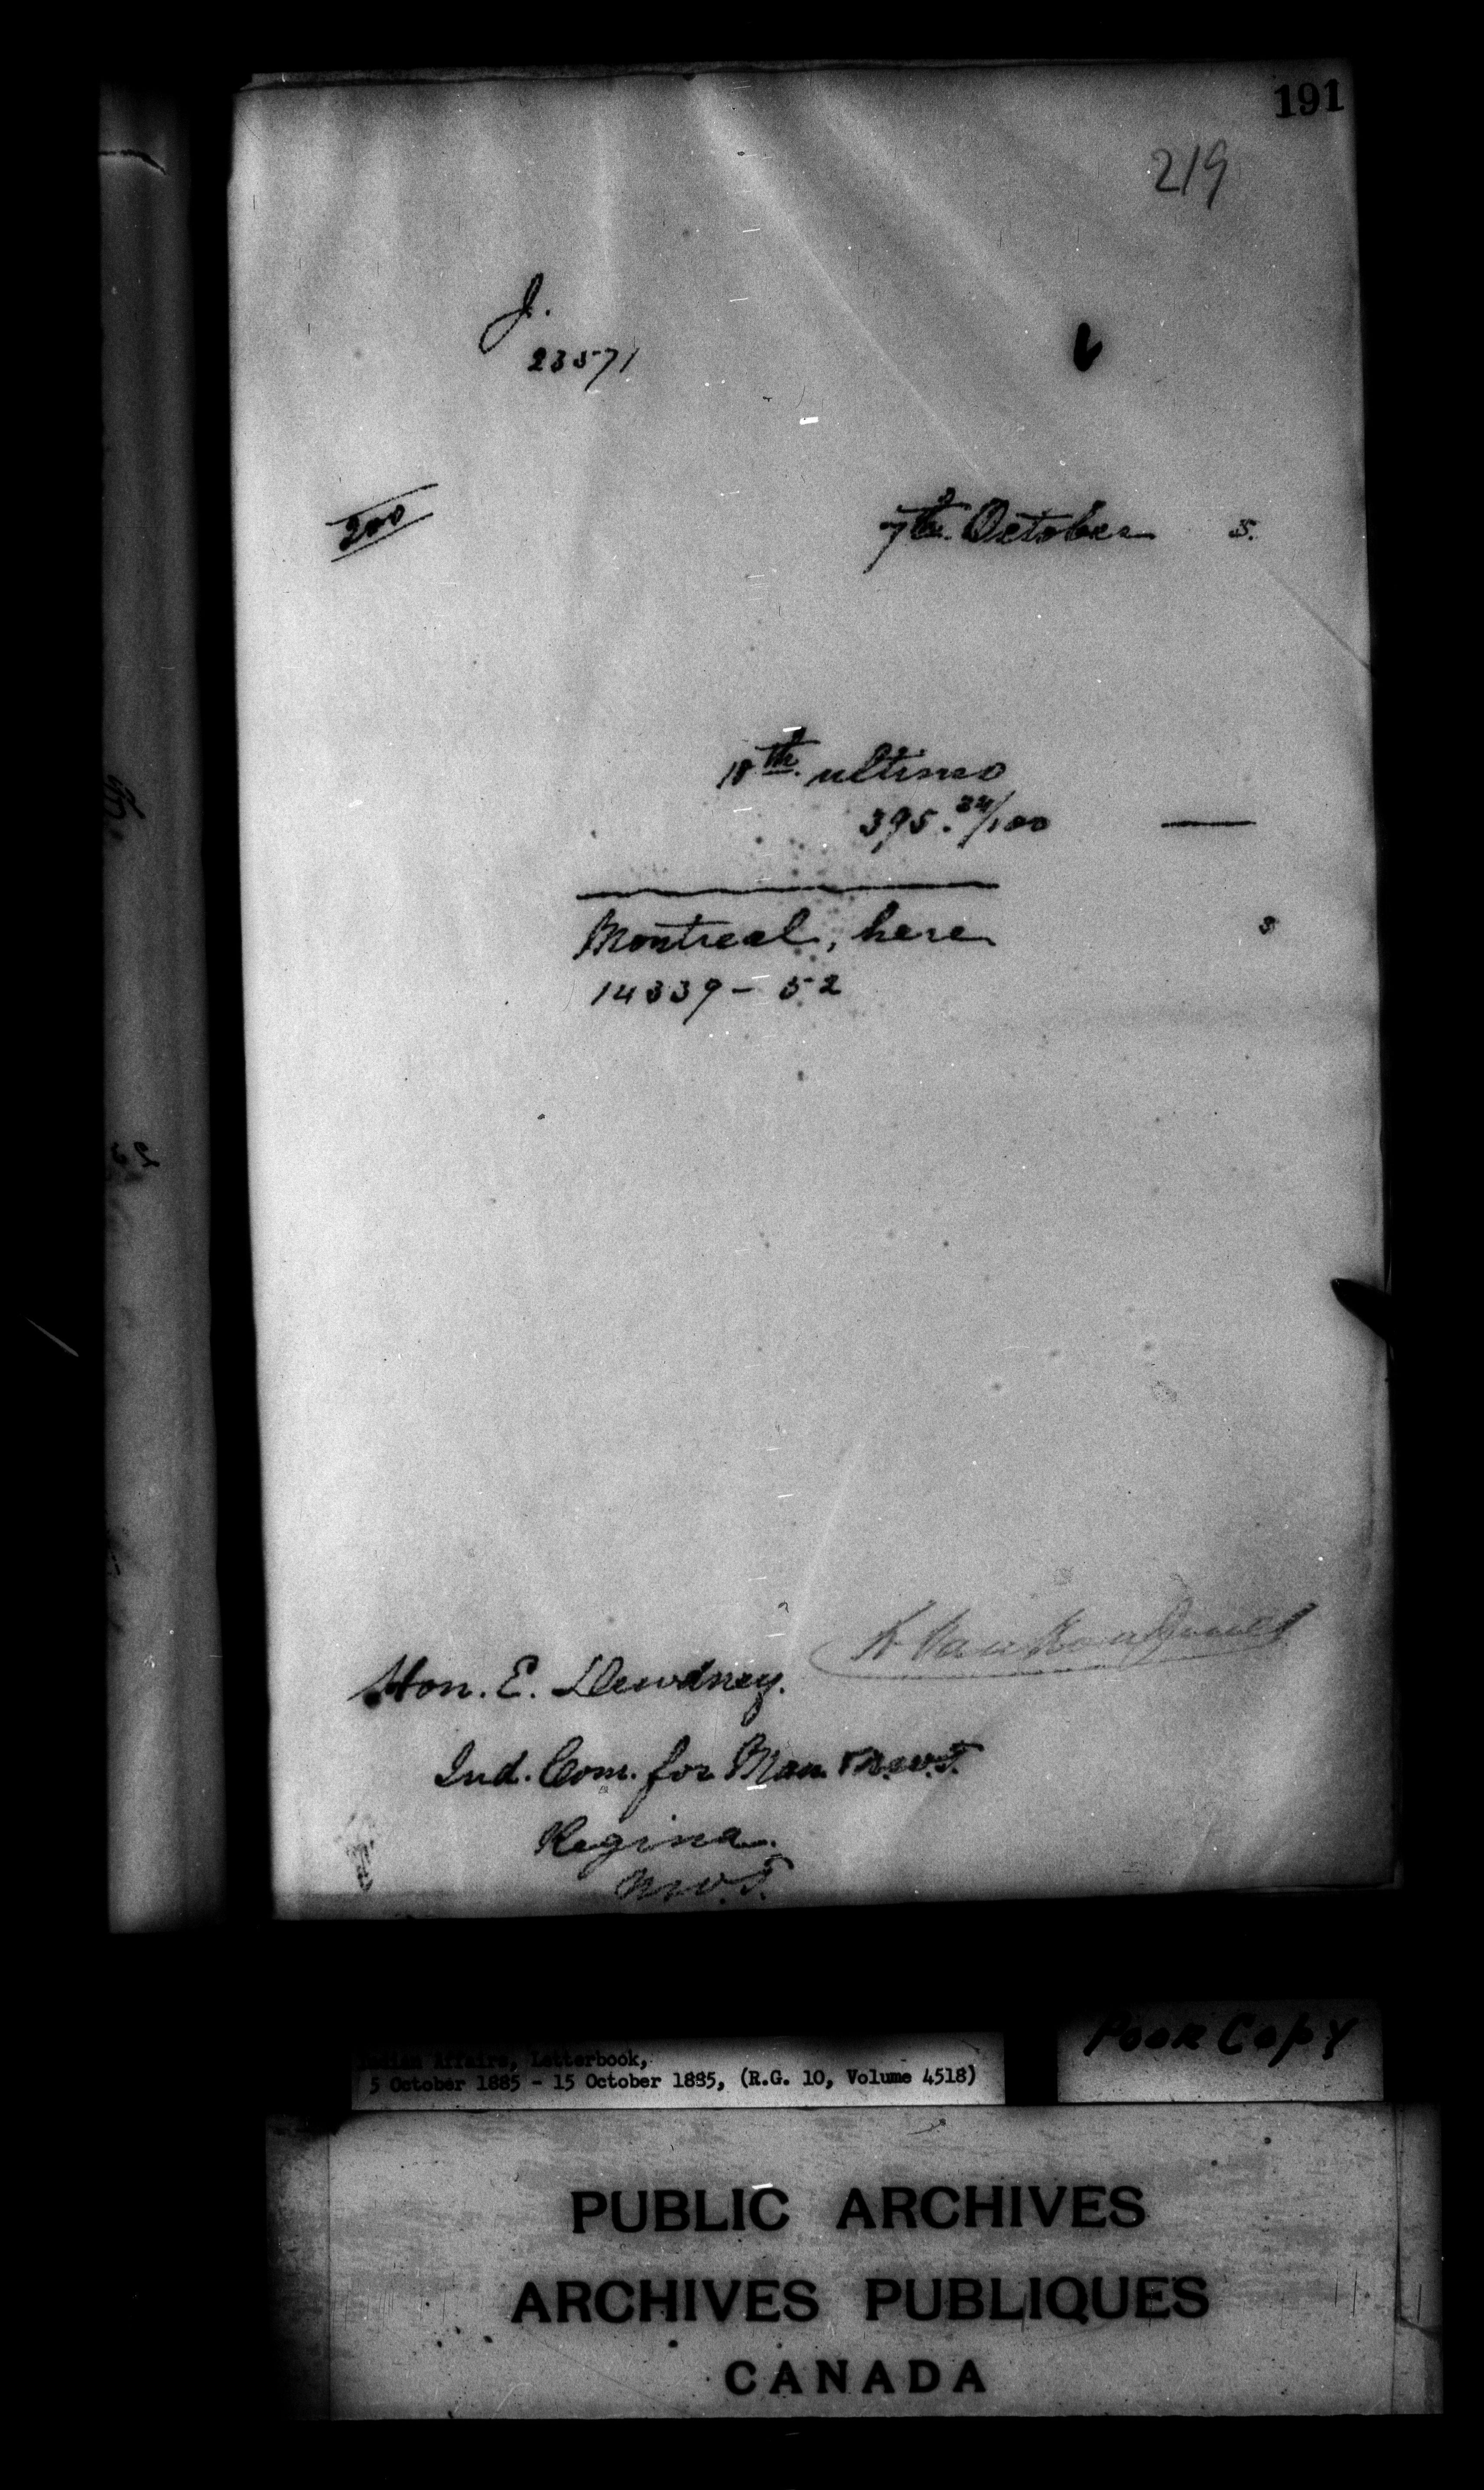 191
219
J.
23571
200
7th. October 5.
18th. ultimo
395.24/100
Montreal, here 3
14339 - 52
Hon. E. Dewdney.
Ind. Com. for Man & N.W.T.
Regina.
N.W.T.
Poor Copy
Indian Affairs, Letterbook,
5 October 1885 - 15 October 1885, (R.G. 10, Volume 4518)
PUBLIC ARCHIVES
ARCHIVES PUBLIQUES
CANADA